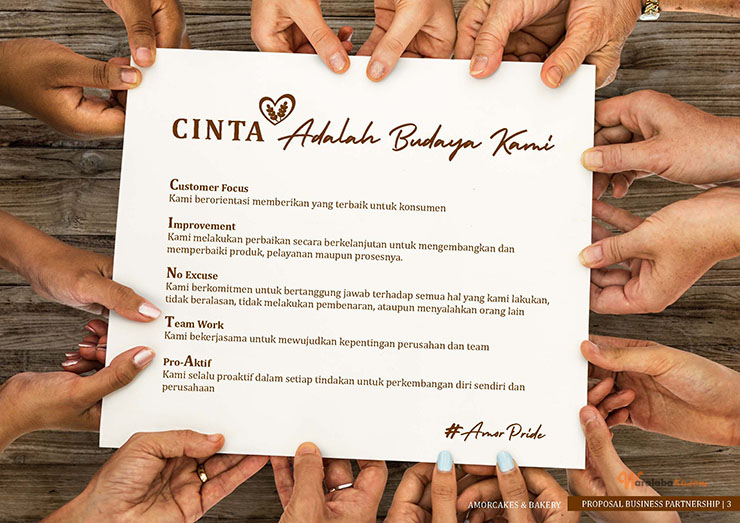 CINTA Adalah Budaya Kami
Customer Focus
Kami berorientasi memberikan yang terbaik untuk konsumen
Improvement
Kami melakukan perbaikan secara berkelanjutan untuk mengembangkan dan
memperbaiki produk, pelayanan maupun prosesnya.
No Excuse
Kami berkomitmen untuk bertanggung jawab terhadap semua hal yang kami lakukan,
tidak beralasan, tidak melakukan pembenaran, ataupun menyalahkan orang lain
Team Work
Kami bekerjasama untuk mewujudkan kepentingan perusahan dan team
Pro-Aktif
Kami selalu proaktif dalam setiap tindakan untuk perkembangan diri sendiri dan
perusahaan
#AmorPride
AMORCAKES & BAKERY
PROPOSAL BUSINESS PARTNERSHIP | 3